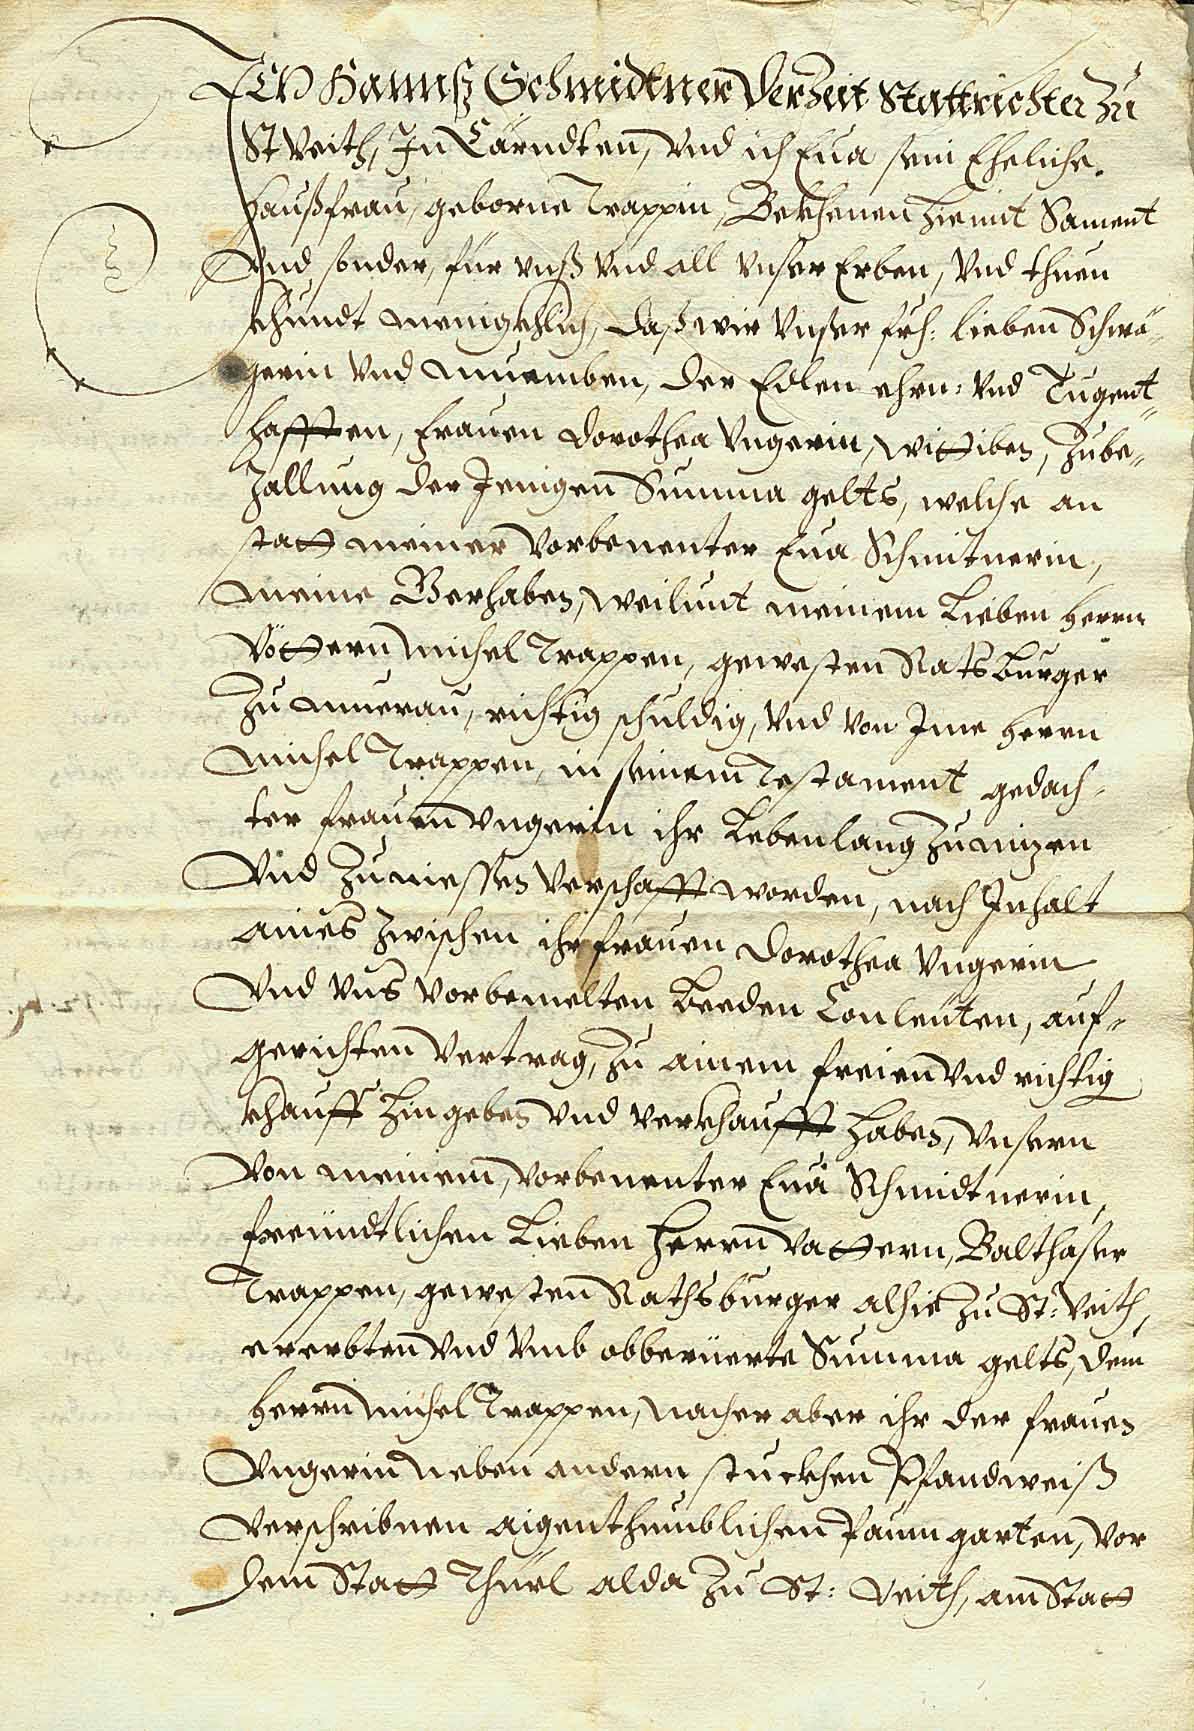 ICH Hannß Schmidtner der Zeit Stattrichter zu
St Veith, In Cärndten, vnd ich Eua sein Eheliche
haußfrau, geborne Trappin, Bekhenen hiemit Sament
Vnd sonder, für vnß vnd all vnser Erben, Vnd thuen
khundt menigkhlich, daß wir vnser frh: lieben Schwä-
gerin vnd Muemben, der Edlen ehrn: vnd Tugent-
hafften, frauen Dorothea Vngerin, Wittiben, zube-
zallung der Jenigen Summa gelts, welche an
statt meiner vorbenenter Eua Schmitnerin,
meine Gerhaben, Weilunt meinem Lieben Herrn
Vöttern Michel Trappen, gewesten Ratsburger
zu Muerau, richtig schuldig, vnd von Ime Herrn
Michel Trappen, in seinem Testament gedach-
ter frauen Vngerin ihr Lebenlang zu nizen
Vnd zu niessen verschafft worden, nach Inhalt
aines zwischen ihr frauen Dorothea Vngerin
Vnd vns vorbemelten beeden Conleüten, auf-
gerichten vertrag, zu ainem freien vnd richtig
khauff hingeben vnd verkhaufft haben, vnsern
von meinem, vorbenenter Eua Schmidtnerin,
freündtlichen Lieben Herrn Vattern, Balthaser
Trappen, gewesten Rathsburger alhie zu St: Veith,
ererbten vnd vmb obberüerte Summa gelts, dem
Herrn Michel Trappen, Nacher aber ihr der frauen
Vngerin neben andern stuckhen Pfandweiß
verschribnen aigenthumblichen Paumgarten, vor
dem Statt Thürl alda zu St: Veith, am Statt